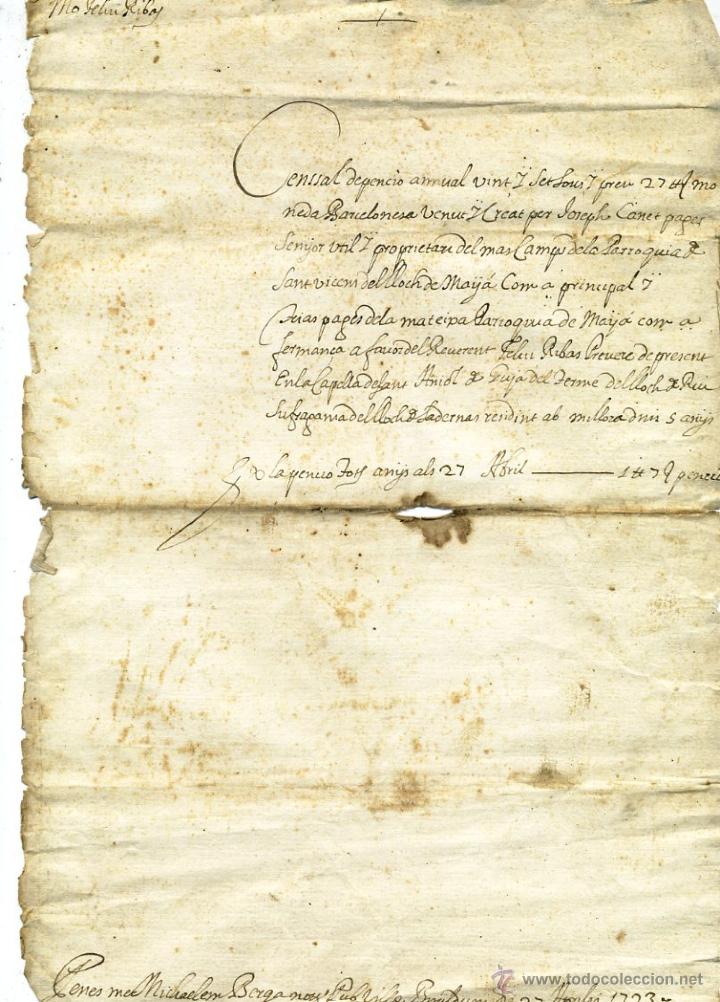 Mo Feliu Ribas
Censsal de pencio annual vint ÿ Set Sous ÿ preu 27 ₶ mo
neda Barcelonesa Venut ÿ Creat per Joseph Canet pages
Senÿor util ÿ proprietari del mas Camps de la Parroquia de
Sant vicens del lloch de Maÿá Com a principal ÿ
pages de la mateixa Parroquia de Maÿá com a
fermança a favor del Reverent Feliu Ribas Prevere de present
En la Capella de Sant Aniol de del Terme del lloch de Riu
Sufraganea del lloch de Sadernas residint ab millora dins 5 anÿs
la pencio Tots anÿs als 27 Abril 1 ₶ 7 pencio
Penes me Michaelem Berga
www.todocoleccion.net